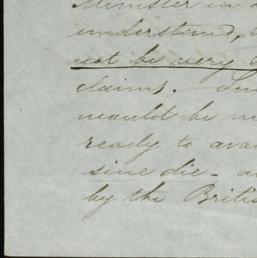 Minister in
understand,
not be very
claims.
would be
ready to
sine die - a
by the British